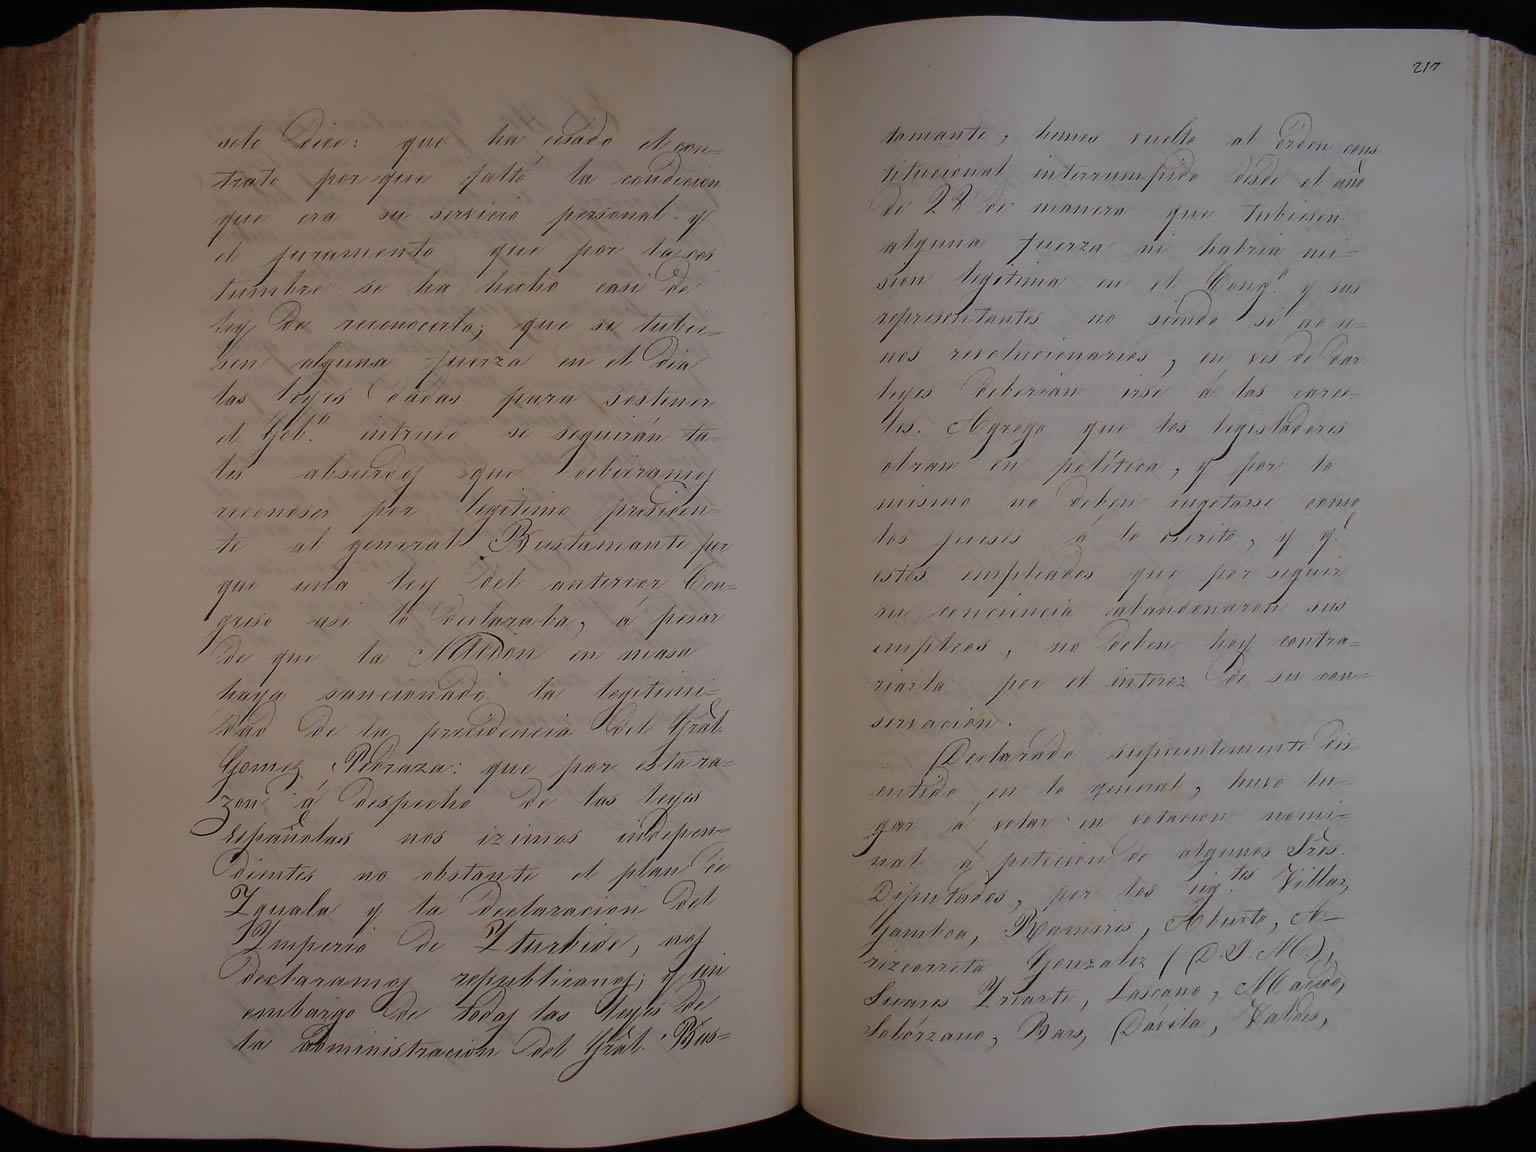 solo dice: que ha cesado el con=
trato por que faltó la condicion
que era su servicio personal y
el juramento que por la cos
tumbre se ha hecho casi de
ley de reconocerlo; que si tubie=
sen alguna fuerza en el dia
las leyes dadas para sostener
el Gob.º intruso se seguirán ta=
les absurdos que debieramos
reconoser por legitimo presiden=
te al general Bustamante por
que una ley del anterior Con=
greso asi lo declaraba, á pesar
de que la Nacion en masa
haya sancionado la legitimi=
dad de la presidencia del Grâl.
Gomez Pedraza: que por esta ra=
zon á despecho de las leyes
Españolas nos izimos indepen=
dientes no obstante el plan de
Yguala y la declaracion del
Ymperio de Yturbide, nos
declaramos republicanos; y sin
embargo de todas las leyes de
la administracion del Grâl. Bus=
217
tamante, hemos vuelto al órden cons
titucional interrumpido desde el año
de 28 de manera que tubiesen
alguna fuerza ni habria mi=
sion legitima en el Cong.º y sus
representantes no siendo si no u=
nos revolucionarios, en ves de dar
leyes deberian irse á las carce=
les. Agrego que los legisladores
obran en política, y por lo
mismo no deben sugetarse como
los jueses á lo escrito, y q.e
estos empleados que por seguir
su conciencia abandonaron sus
empleos, no deben hoy contra=
riarla por el interez de su con=
servacion.
Declarado suficientemente dis
cutido en lo general, huvo lu=
gar á votar en votacion nomi=
nal á peticion de algunos Sres.
Diputados, por los sig.tes Villar,
Gamboa, Ramires, Aburto, A=
rizcorreta Gonzalez (D. J. M.),
Suares Yriarte, Lascano, Macedo,
Solórzano, Bars, Dávila, Valdes,